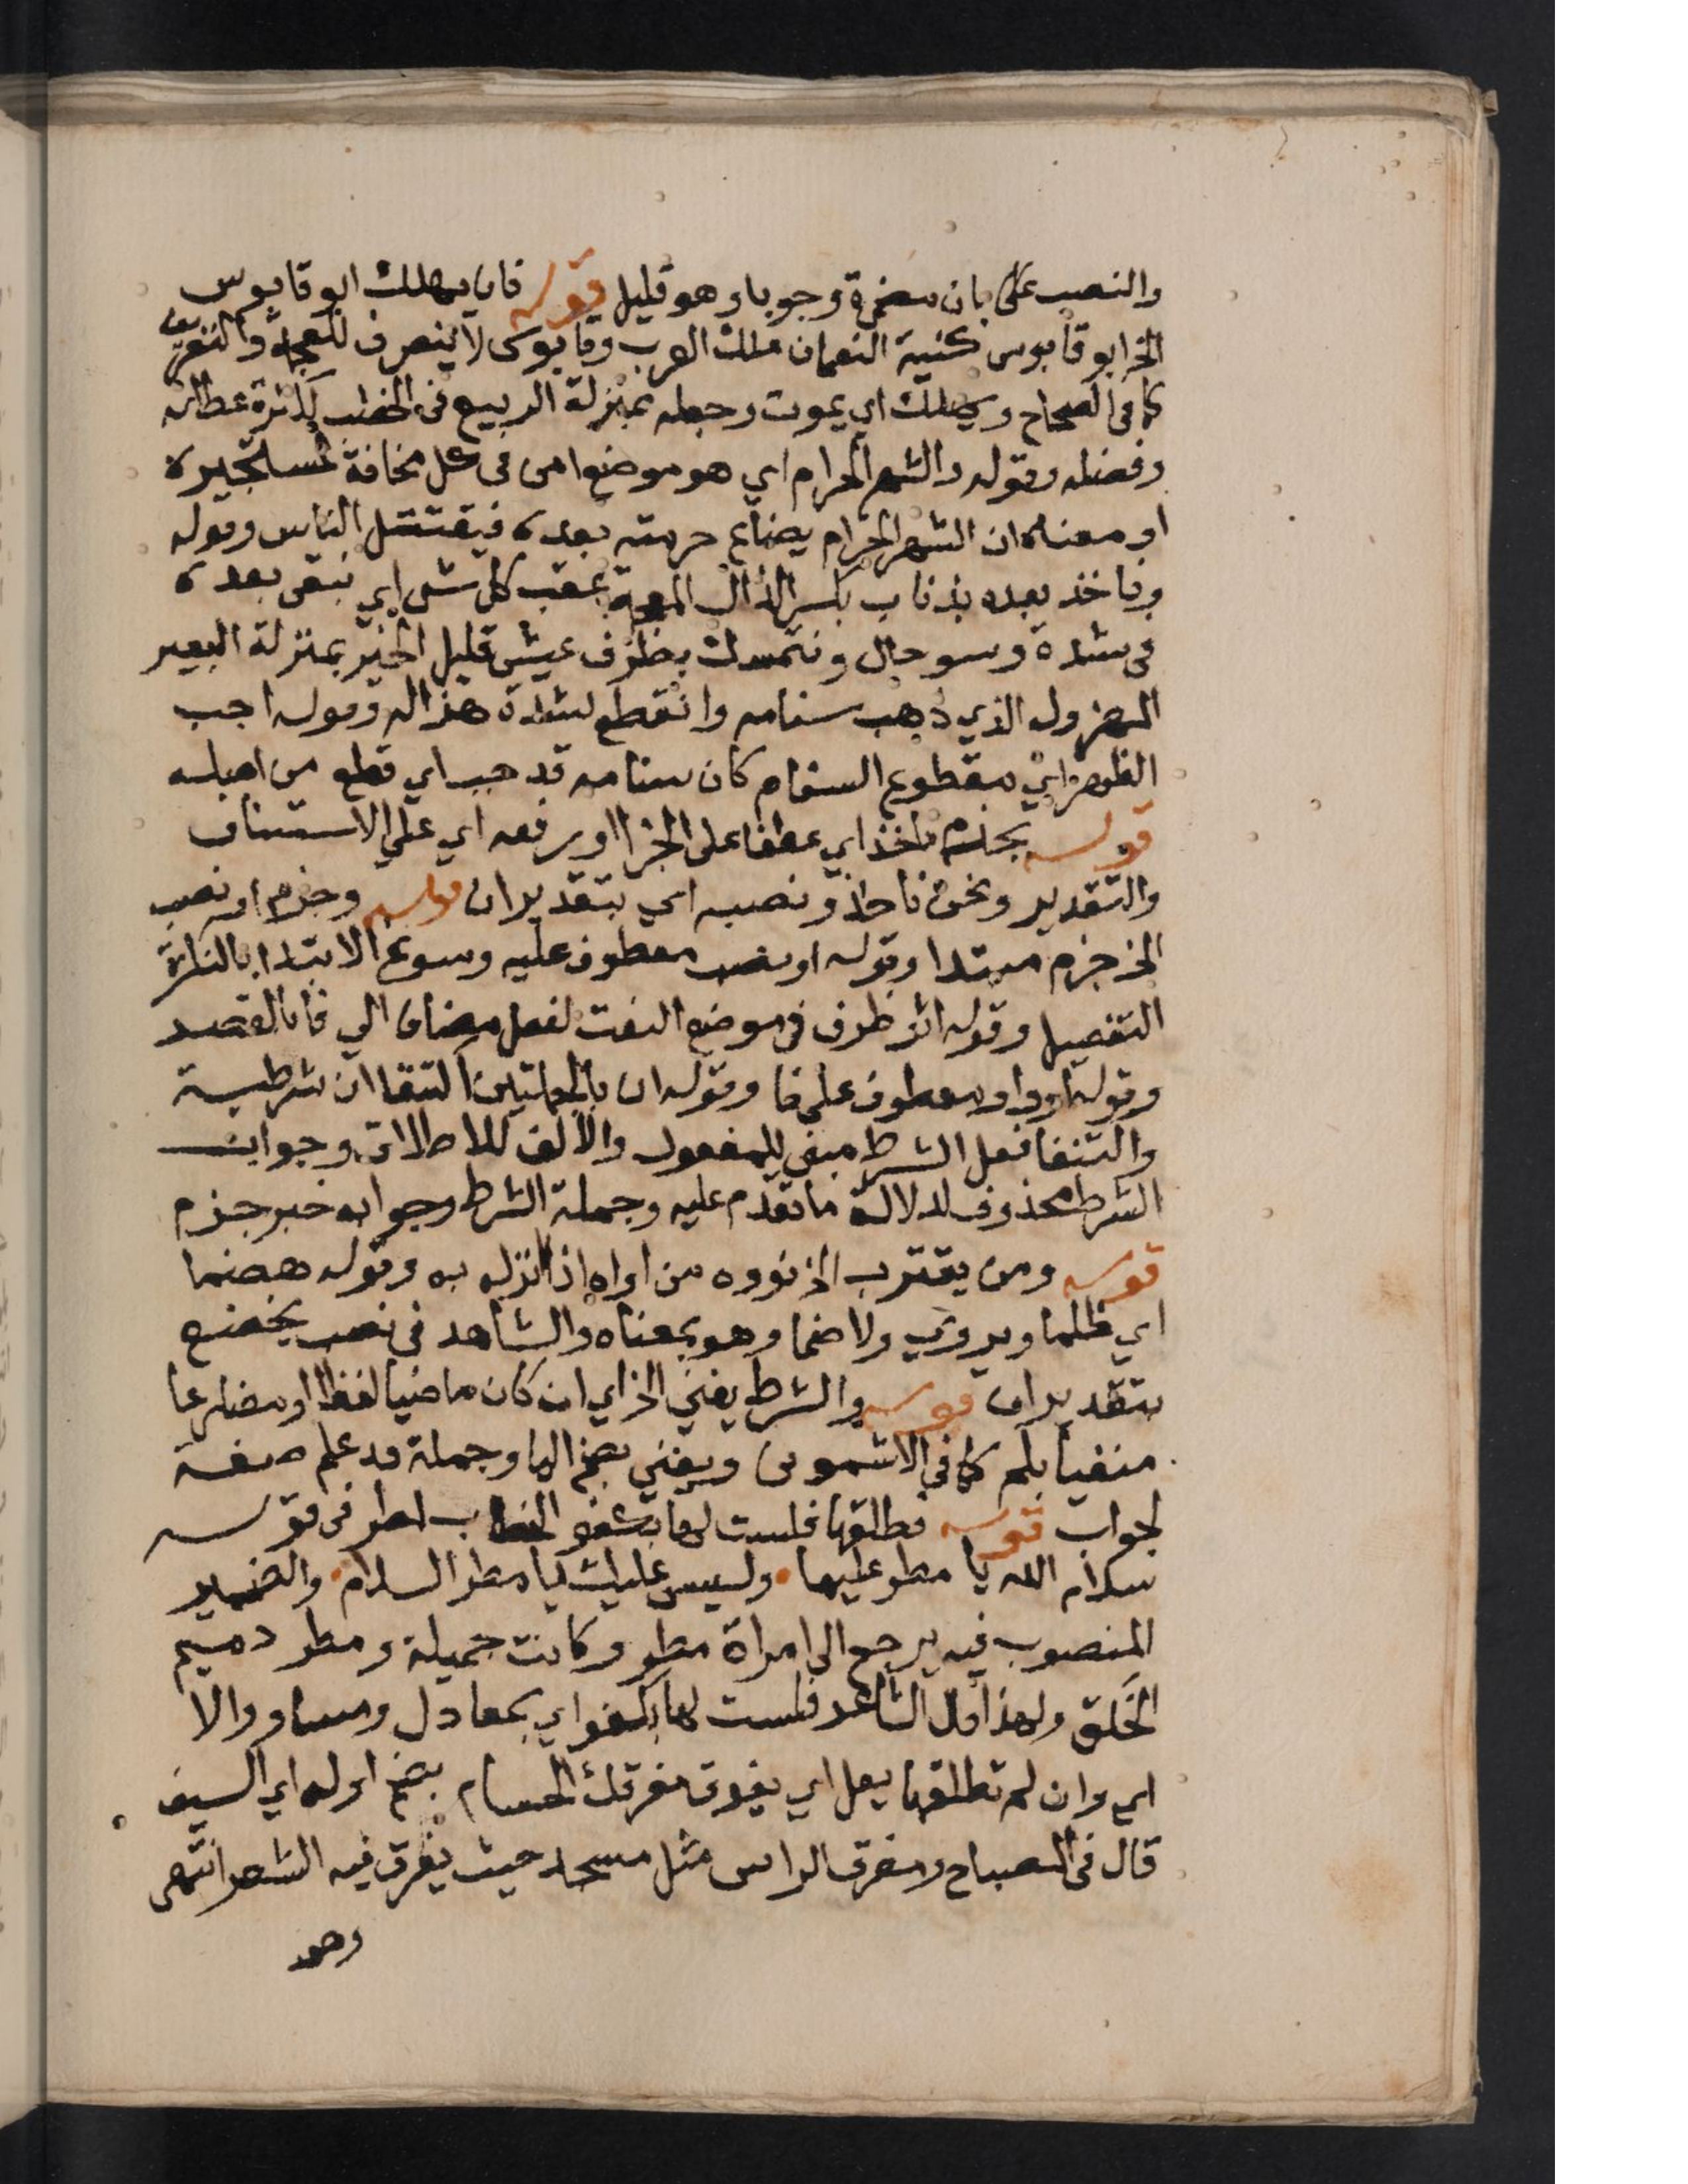 والنصب على بان مضمرة وجوبا وهو قليل قوله فان يهلك ابو قابوس
الخ ابو قابوس كنية النعمان ملك العرب وقابوس لا ينصرف للعجمة والتعريف
كما في الصحاح ويهلك اي يموت وجعله بمنزلة الربيع في الخصب لكثرة عطائه
وفضله وقوله والشهر الحرام اي هو موضع امن في كل مخافة لمستجيره
او معناه ان الشهر الحرام يضاع حرمته بعده فيقتتل الناس وقوله
وناخذ بعده بذناب بكسر الذال المعجمة بعقب كل شي اي نبقى بعده
في شدة وسو حال ونتمسك بطرف عيش قليل الخير بمنزلة البعير
المهزول الذي ذهب سنامه وانقطع لشدة هزاله وقوله اجب
الظهر اي مقطوع السنام كان سنامه قد جب اي قطع من اصله
قوله بجزم ناخذ اي عطفا على الجزا او برفعه اي على الاستئناف
والتقدير ونحن ناخذ ونصبه اي بتقدير ان قوله وجزم او نصب
الخ جزم مبتدا وقوله او نصب معطوف عليه وسوغ الابتدا بالنكرة
التفصيل وقوله اثر ظرف في موضع النعت لفعل مضاف الي فا بالقصر
وقوله او واو معطوف على فا وقوله ان بالجملتين اكتنفا ان شرطية
واكتنفا فعل الشرط مبني للمفعول والالف للاطلاق وجواب
الشرط محذوف لدلالة ما تقدم عليه وجملة الشرط وجوابه خبر جزم
قوله ومن يقترب الخ نووه من اواه اذا انزله به وقوله هضما
اي ظلما ويروي ولا ضما وهو بمعناه والشاهد في نصب يخضع
بتقدير ان قوله والشرط يغني الخ اي ان كان ماضيا لفظا او مضارعا
منفيا بلم كما في الاشموني ويغني بضم اليا وجملة قد علم صفة
لجواب قوله فطلقها فلست لها بكفو الخطاب لمطر في قوله
سلام الله يا مطر عليها وليس عليك يا مطر السلام والضمير
المنصوب فيه يرجع الى امراة مطر وكانت جميلة ومطر دميم
الخَلق ولهذا قال الشاعر فلست لها بكفو اي بمعادل ومساو والا
اي وان لم تطلقها يعل اي يفوق مفرقك الحسام بضم اوله اي السيف
قال في المصباح ومفرق الراس مثل مسجد حيث يفرق فيه الشعر انتهى
وهو